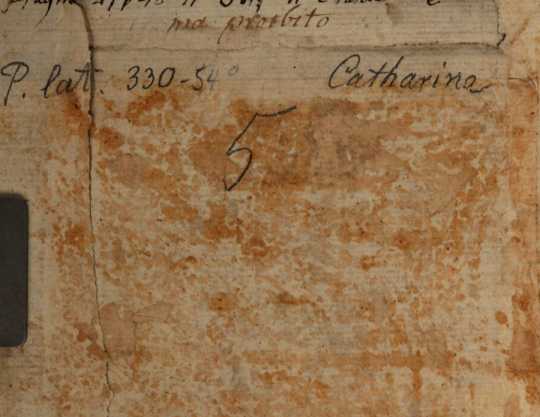 ma proibito
P. lat. 330-54° Catharina
5